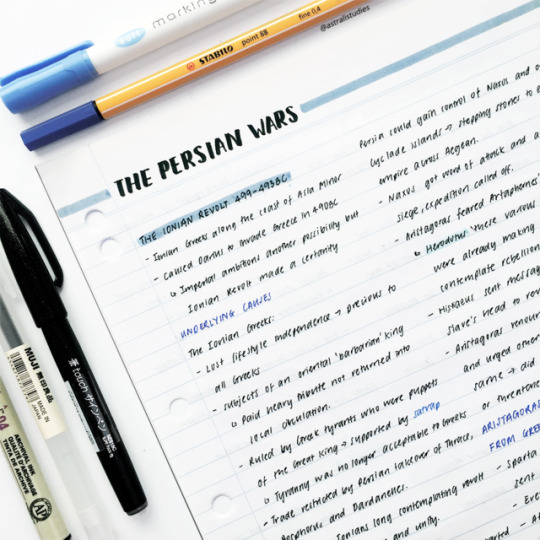 marking
STABILO point 88 fine 0.4
@astralstudies
THE PERSIAN WARS
THE IONIAN REVOLT 499-493BC
- Ionian Greeks along the coast of Asia Minor
- Caused Darius to invade Greece in 490BC
↳ Imperial ambitions another possibility but
Ionian Revolt made a certainty
UNDERLYING CAUSES
The Ionian Greeks:
- Lost lifestyle independence → precious to
all Greeks
- Subjects of an oriental 'barbarian' king
↳ Paid heavy tribute not returned into
local circulation.
- Ruled by Greek tyrants who were puppets
of the Great King → supported by satrap
↳ Tyranny was no longer acceptable to Greeks
- Trade restricted by Persian takeover of Thrace,
Bosphorus and Dardanelles.
Ionians long contemplating revolt
and unity.
Persia could gain control of Naxos and
Cyclade islands → stepping stones to
empire across Aegean.
- Naxos got word of attack and
siege, expedition called off.
- Aristagoras feared Artaphernes'
↳ Herodotus "there various
were already making
contemplate rebellion
- Histiaeus sent message
slave's head to
- Aristagoras
and urged
same → did
or threatened
ARISTAGORAS
FROM
- Sparta
MUJI
MADE IN
JAPAN
touch サインペン
04
ARCHIVAL INK
AP